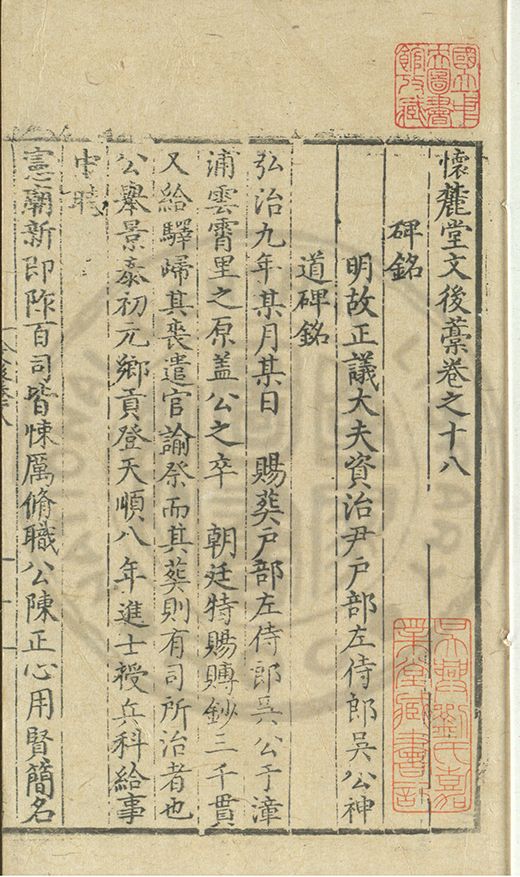 懷麓堂文後藁卷之十八
碑銘
明故正議大夫資治尹戶部左侍郎吳公神
道碑銘
弘治九年某月某日　賜葬戶部左侍郎吳公于漳
浦雲霄里之原蓋公之卒　朝廷特賜賻鈔三千貫
又給驛歸其喪遣官諭祭而其葬則有司所治者也
公舉景泰初元鄉貢登天順八年進士授兵科給事
中時
憲廟新即阼百司皆悚厲脩職公陳正心用賢簡名
國立中
央圖書
館收藏
吳興劉氏嘉
業堂藏書記